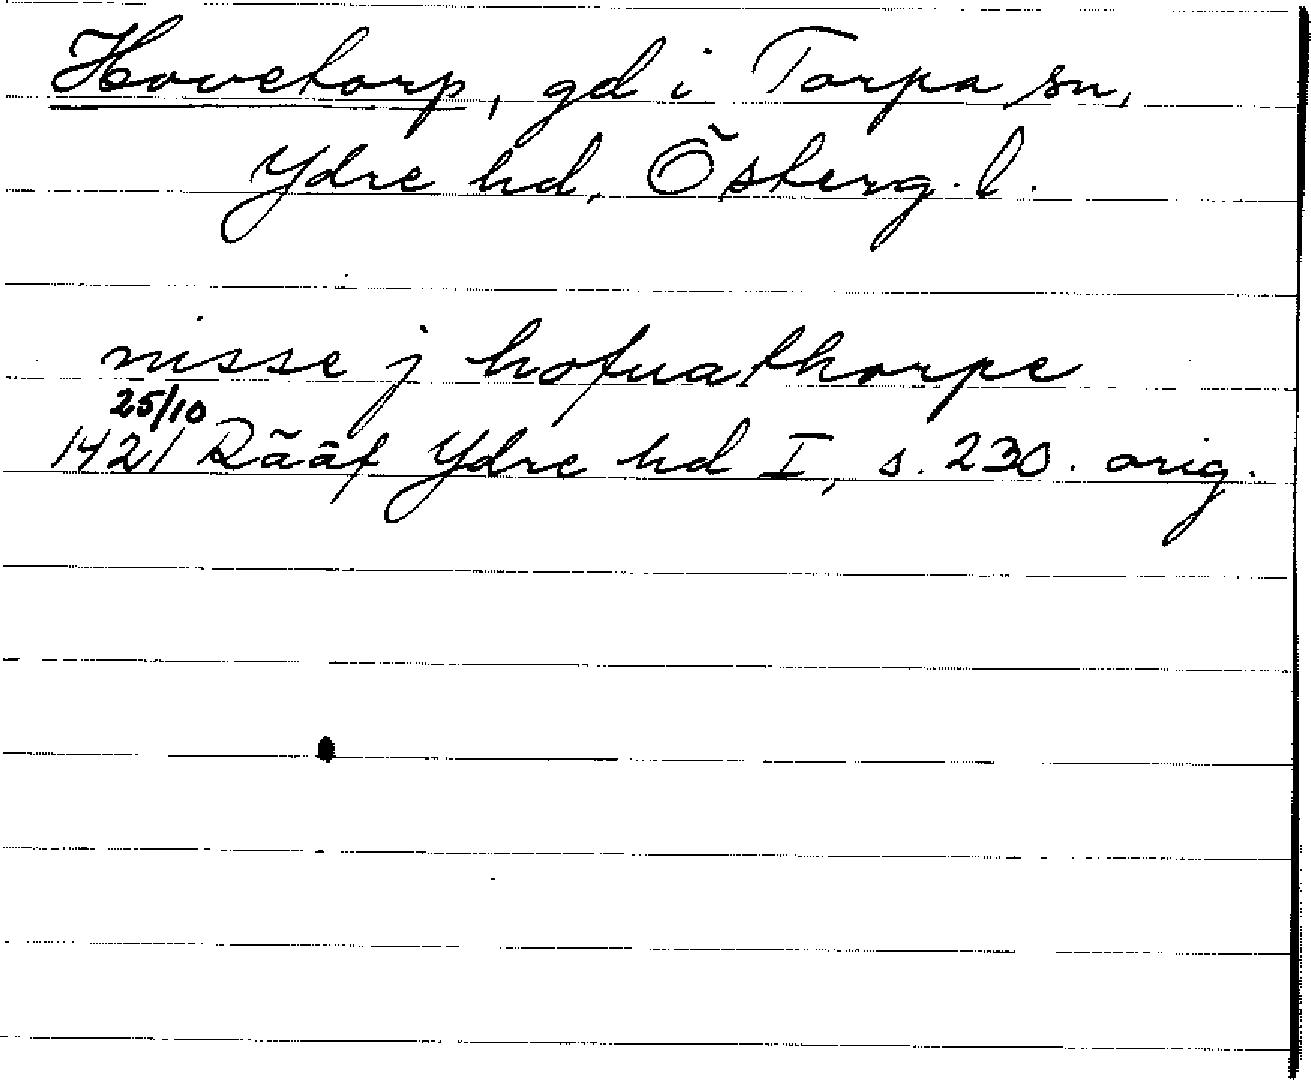 Hovetorp, gd i Torpa sn,
Ydre hd, Österg. l.
nisse j hofuathorpe
25/10
1421 Rääf Ydre hd I, s. 230. orig.